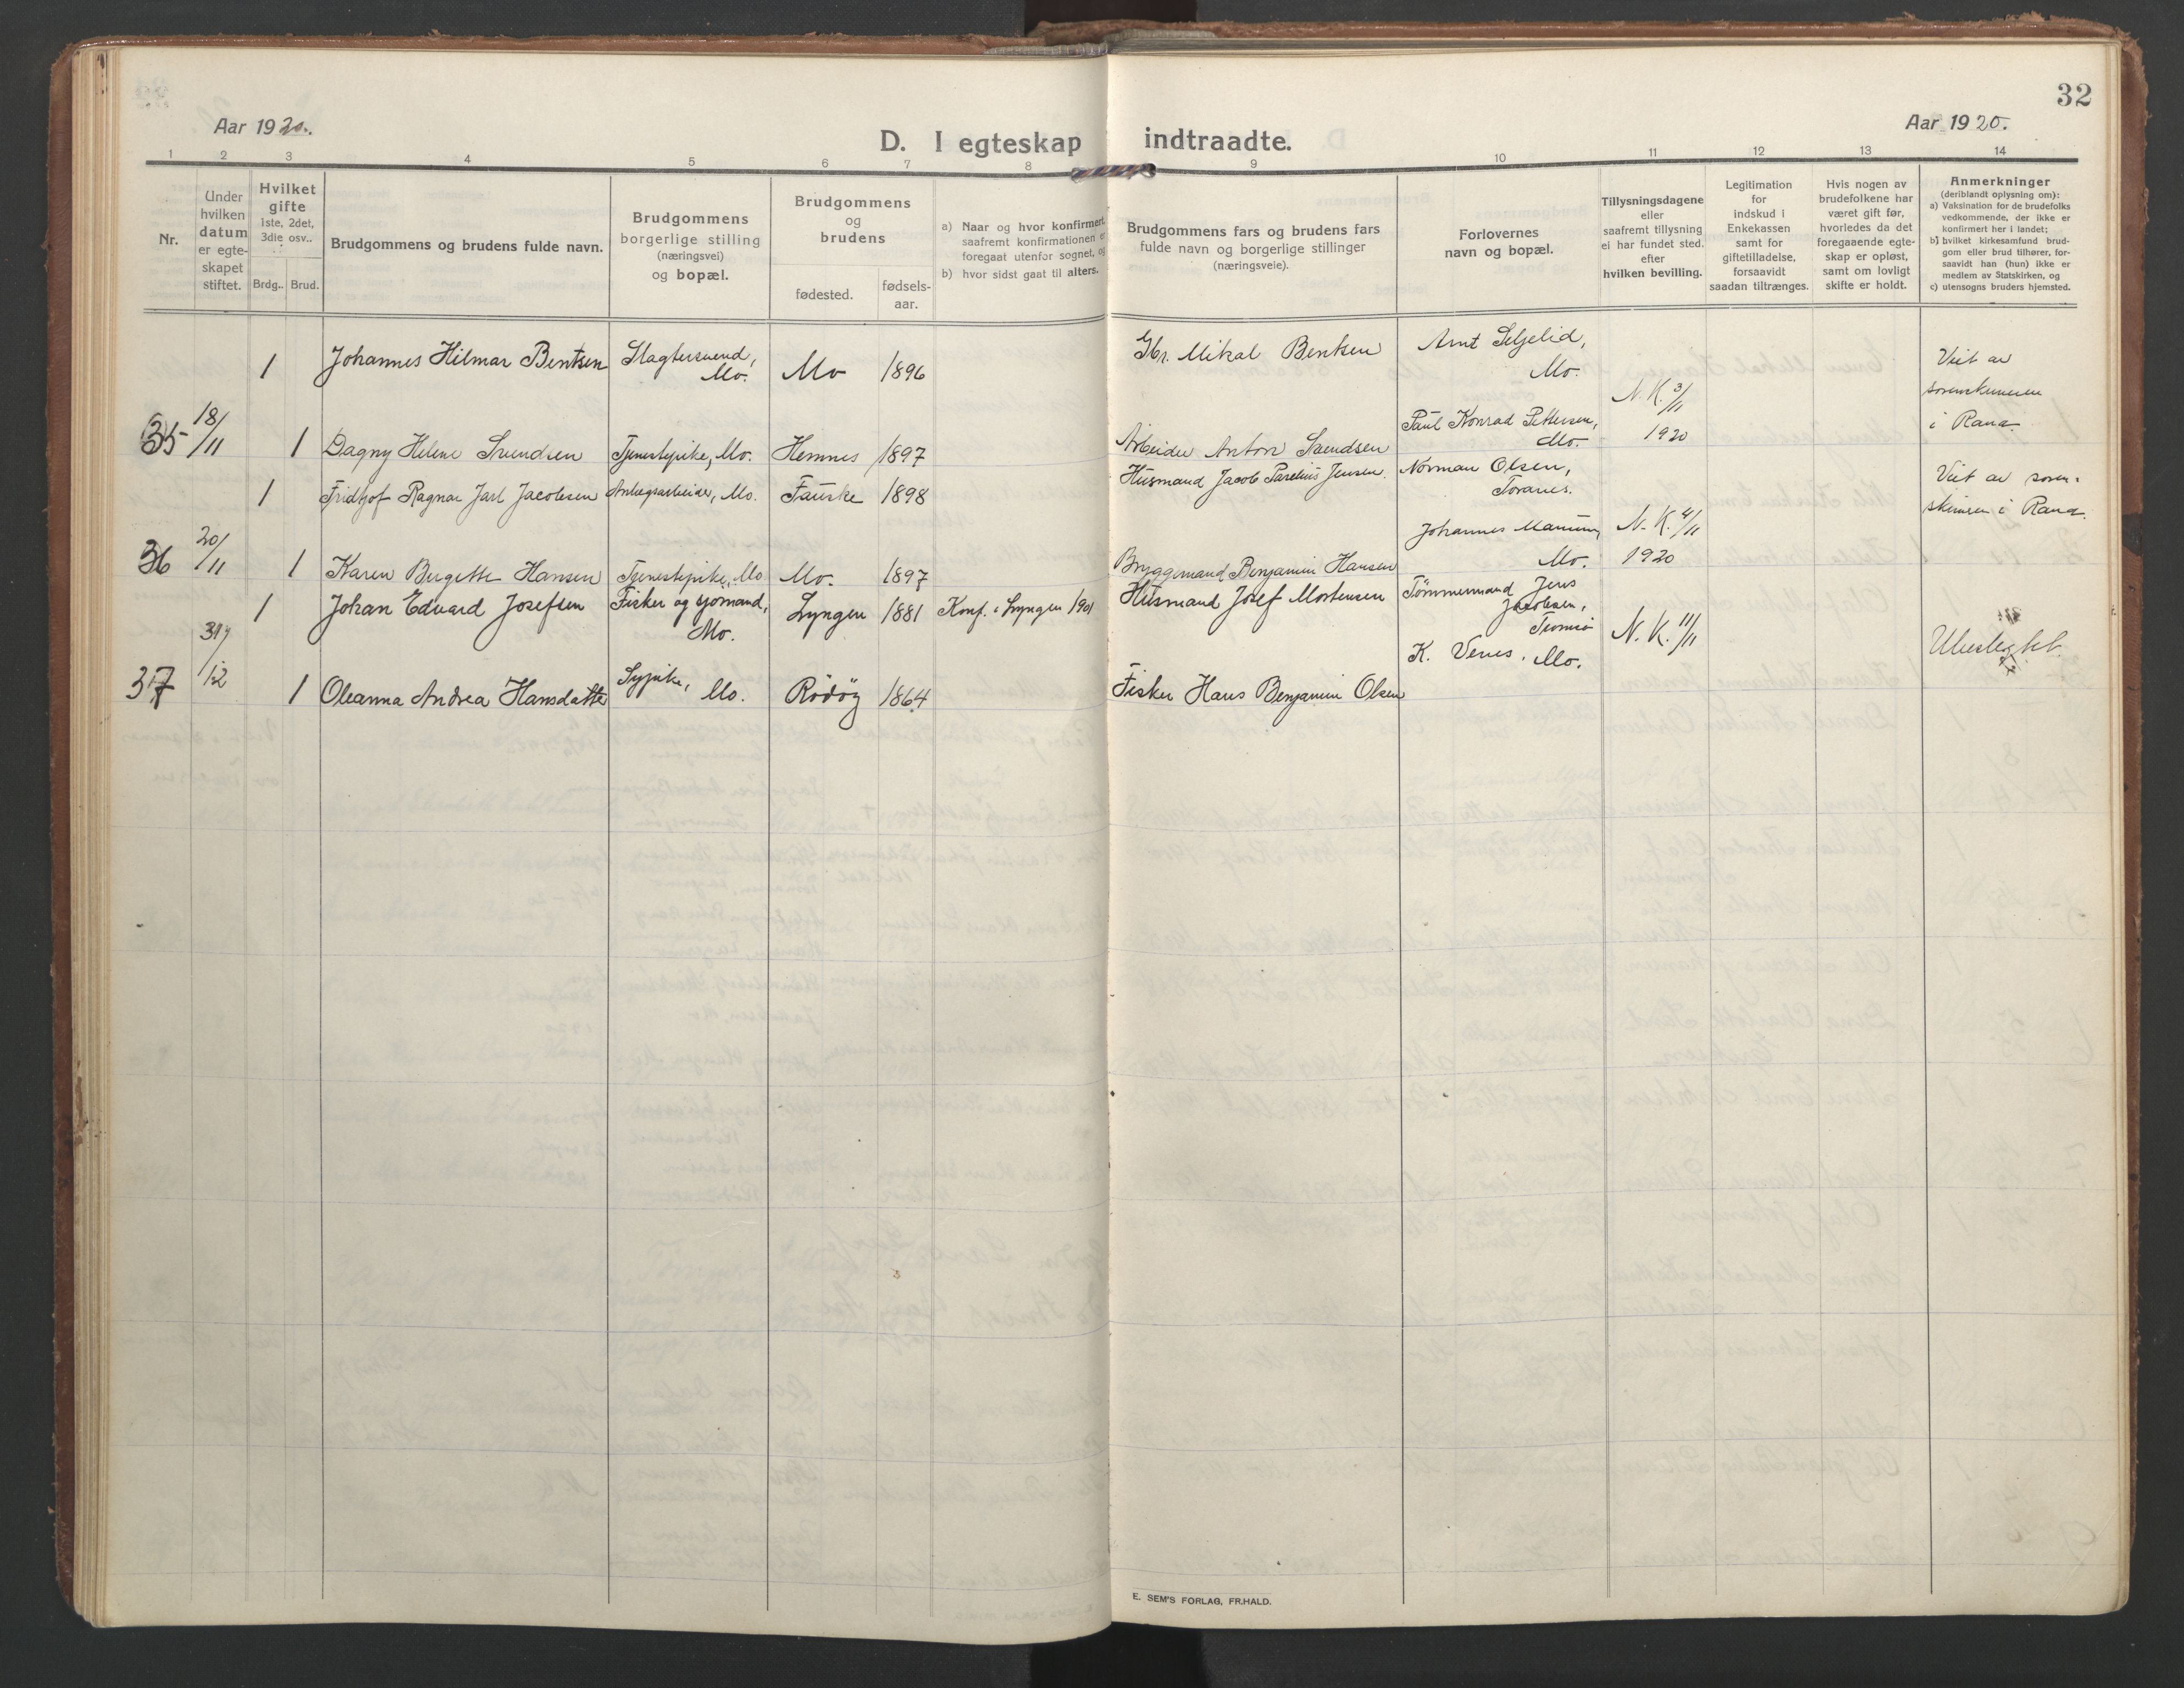 32
Aar 1920.
D. I egteskap indtraadte.
Aar 1920.
1 2 3 4 5 6 7 8 9 10 11 12 13 14
Nr.
Under
hvilken
datum
er egte-
skapet
stiftet.
Hvilket
gifte
1ste, 2det,
3die osv..
Brdg.. Brud.
Brudgommens og brudens fulde navn.
Brudgommens
borgerlige stilling
(næringsvei)
og bopæl.
Brudgommens
og
brudens
fødested.
fødsels-
aar.
a) Naar og hvor konfirmert,
saafremt konfirmationen er
foregaat utenfor sognet, og
b) hvor sidst gaat til alters.
Brudgommens fars og brudens fars
fulde navn og borgerlige stillinger
(næringsveie).
Forlovernes
navn og bopæl.
Tillysningsdagene
eller
saafremt tillysning
ei har fundet sted.
efter
hvilken bevilling.
Legitimation
for
indskud i
Enkekassen
samt for
giftetilladelse,
forsaavidt
saadan tiltrænges.
Hvis nogen av
brudefolkene har
været gift før,
hvorledes da det
foregaaende egte-
skap er opløst,
samt om lovligt
skifte er holdt.
Anmerkninger
(deriblandt oplysning om):
a) Vaksination for de brudefolks
vedkommende, der ikke er
konfirmert her i landet;
b) hvilket kirkesamfund brud-
gom eller brud tilhører, for-
saavidt han (hun) ikke er
medlem av Statskirken, og
c) utensogns bruders hjemsted.
1 Johannes Hilmar Bentsen Slagtersvend, Mo. Mo 1896 Gbr. Mikal Bentsen Arnt Seljelid, Mo.
Viet av
sorenskriveren
i Rana
35 18/11 1 Dagny Helene Svendsen Tjenestepike, Mo. Hemnes 1897 Arbeider Anton Svendsen Paul Konrad Pettersen, Mo. N. K. 3/11 1920
1 Fridtjof Ragnar Jarl Jacobsen Anlægsarbeider, Mo. Fauske 1898 Husmand Jacob Parelius Jensen Norman Olsen, Toranes.
Viet av soren-
skriveren i Rana.
36 20/11 1 Karen Bergette Hansen Tjenestepike, Mo Mo. 1897 Bryggemand Benjamin Hansen Johannes Mo. N. K. 4/11 1920
1 Johan Edvard Josefsen Fisker og sjømand, Mo. Lyngen 1881 Konf. i Lyngen 1901 Husmand Josef Mortensen Tømmermand Jens Jacobsen, Tromsø
37 1 Oleanna Andrea Hansdatter Sypike, Mo. Rödöy 1864 Fisker Hans Benjamin Olsen K. Venes. Mo. N. K. 11/11
Ubeslegtet.
E. SEM'S FORLAG, FR.HALD.